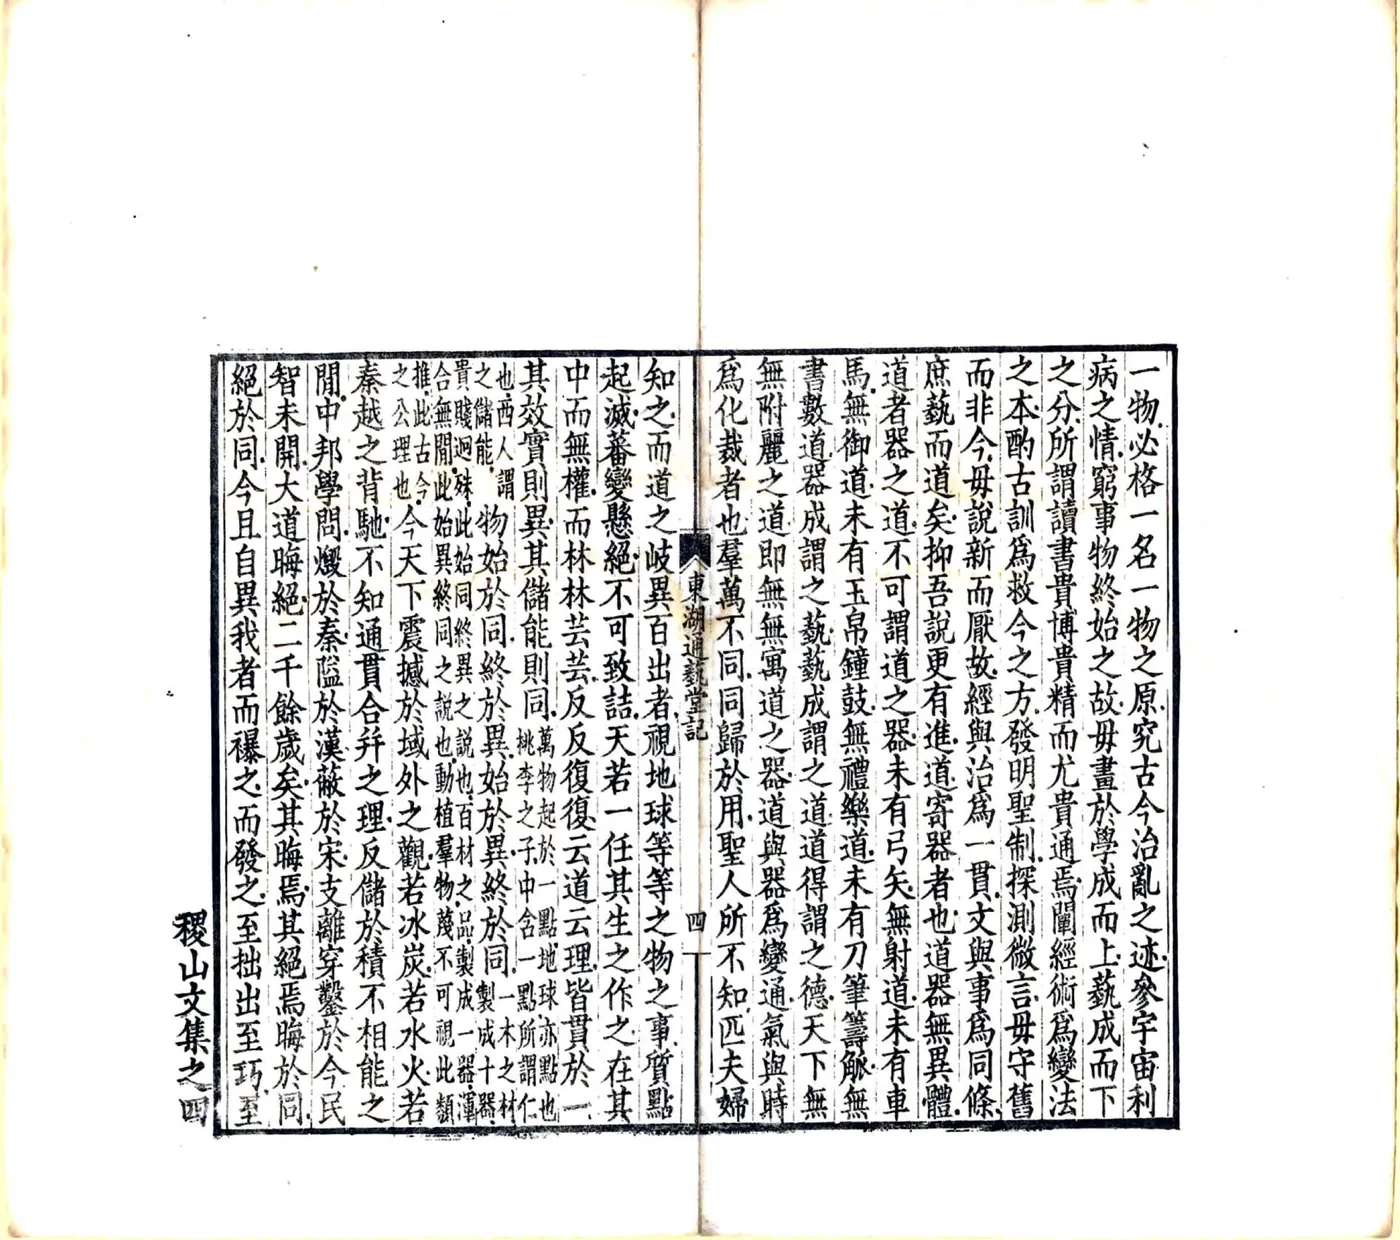 一物必格一名一物之原究古今治亂之迹參宇宙利
病之情窮事物終始之故毋畫於學成而上藝成而下
之分所謂讀書貴博貴精而尤貴通焉闡經術為變法
之本酌古訓為救今之方發明聖制探測微言毋守舊
而非今毋說新而厭故經與治為一貫文與事為同條
庶藝而道矣抑吾說更有進道寄器者也道器無異體
道者器之道不可謂道之器未有弓矢無射道未有車
馬無御道未有玉帛鐘鼓無禮樂道未有刀筆籌觚無
書數道器成謂之藝藝成謂之道道得謂之德天下無
無附麗之道即無無寓道之器道與器為變通氣與時
為化裁者也羣萬不同同歸於用聖人所不知匹夫婦
東湖通藝堂記
四
知之而道之岐異百出者視地球等等之物之事質點
起滅蕃變懸絕不可致詰天若一任其生之作之在其
中而無權而林林芸芸反反復復云道云理皆貫於一
其效實則異其儲能則同萬物起於一點地球亦點也
桃李之子中含一點所謂仁
也西人謂
之儲能物始於同終於異始於異終於同一木之材
製成十器
貴賤迥殊此始同終異之說也百材之品製成一器渾
合無間此始異終同之說也動植羣物蕃不可視此類
推此古今
之公理也今天下震撼於域外之觀若冰炭若水火若
秦越之背馳不知通貫合并之理反儲於積不相能之
間中邦學問燬於秦隘於漢蔽於宋支離穿鑿於今民
智未開大道晦絕二千餘歲矣其晦焉其絕焉晦於同
絕於同今且自異我者而襮之而發之至拙出至巧至
稷山文集之四